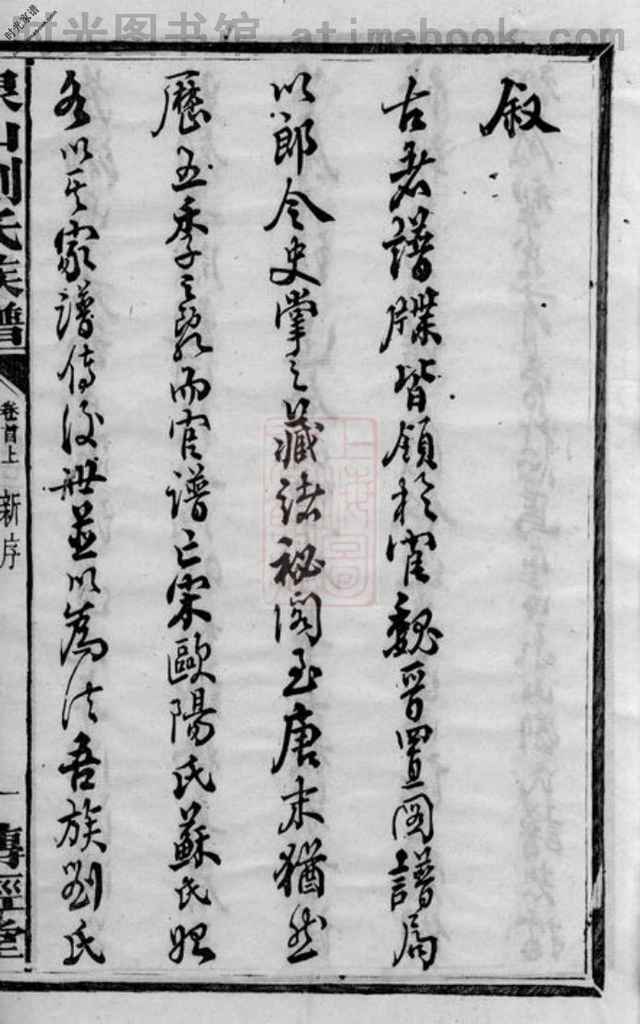 时光图书馆 - www.atimebook.com
时光家谱
叙
古者譜牒皆領於官魏晉置圖譜局
以郎令史掌之藏諸祕閣至唐末猶然
歷五季之亂而官譜亡宋歐陽氏蘇氏始
各以其家譜傳後世並以為法吾族劉氏
山劉氏族譜
卷首上
新序
一
傳經堂